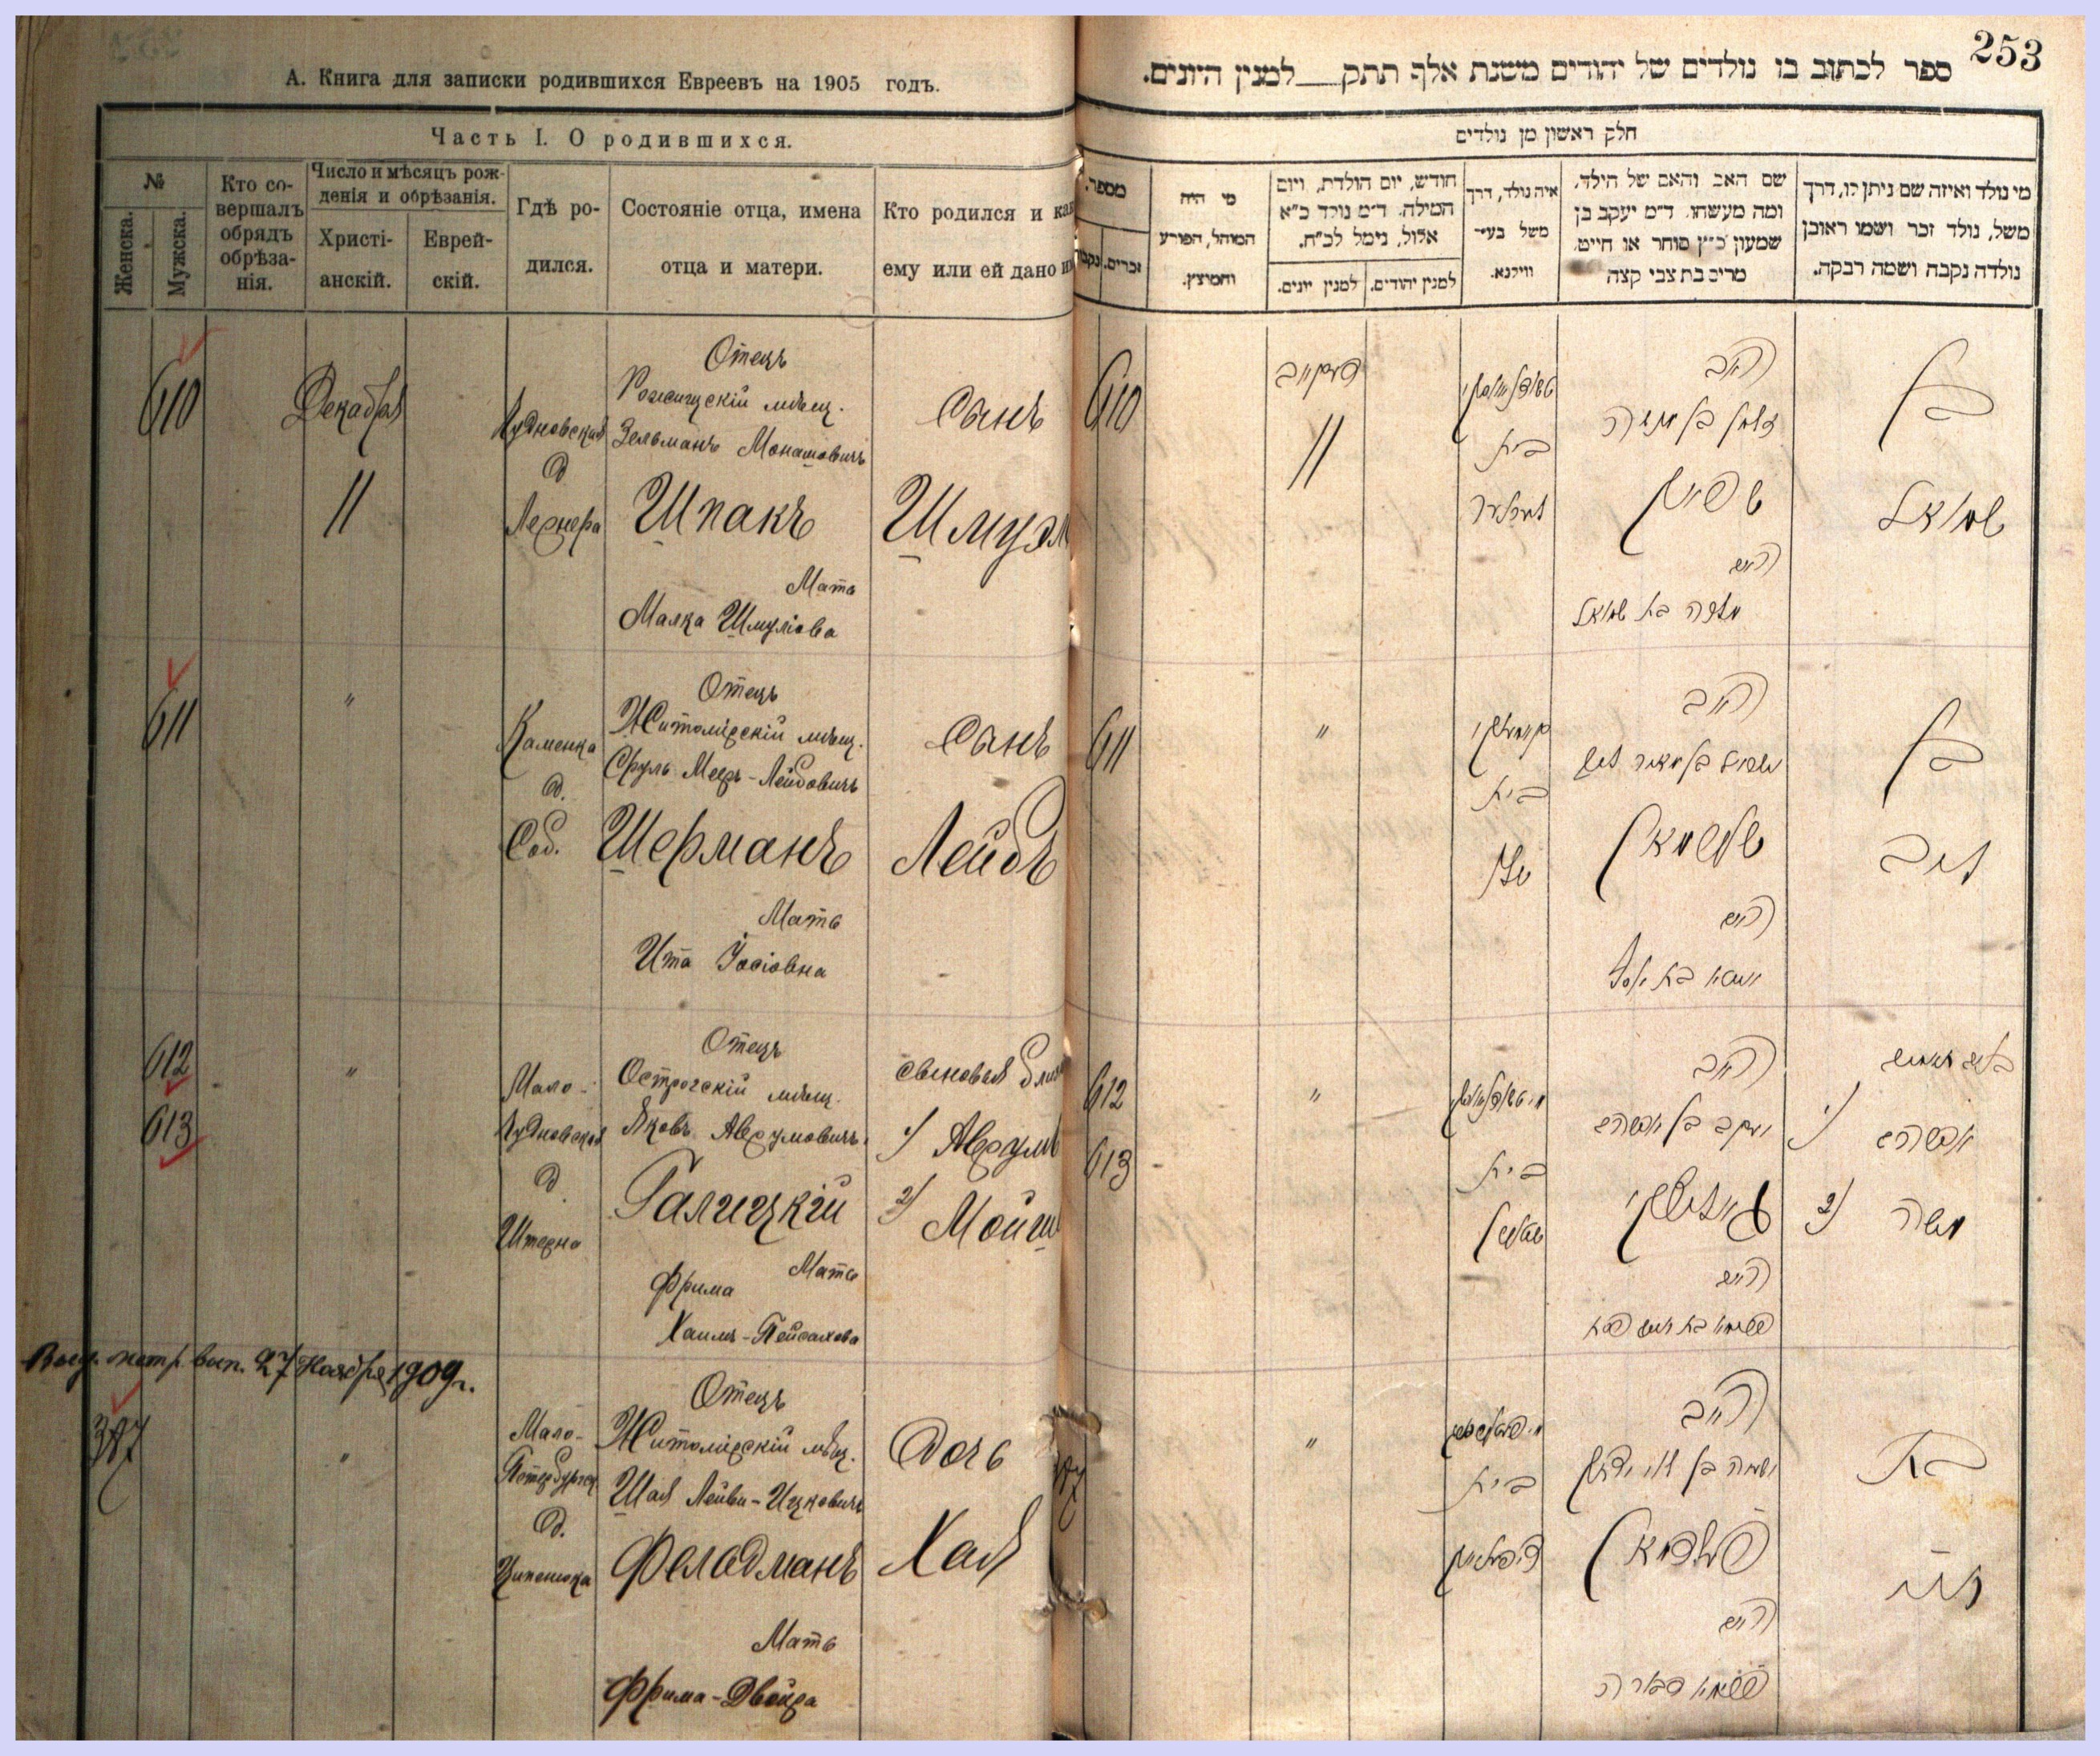 А. Книга для записки родившихся Евреевъ на 1905 годъ.
Часть I. О родившихся.
№
Женска.
Мужска.
Кто со-
вершалъ
обрядъ
обрѣза-
нія.
Число и мѣсяцъ рож-
денія и обрѣзанія.
Христі-
анскій.
Еврей-
скій.
Гдѣ ро-
дился.
Состояніе отца, имена
отца и матери.
Кто родился и как
ему или ей дано и
610
Декабря
11
Чудновская
д
Лернера
Отецъ
мѣщ.
Зельманъ Монашовичъ
Шпакъ
Мать
Малка Шмуліова
Сынъ
Шмуэл
611
"
Каменка
д.
Соб.
Отецъ
Житомірскій мѣщ.
Сруль Меер-Лейбовичъ
Шерманъ
Мать
Ита Іосіовна
Сынъ
Лейбъ
612
613
"
Мало-
Чудновская
д.
Штерна
Отецъ
Острогскій мѣщ.
Яковъ Аврумовичъ
Галицкій
Мать
Фрима
Хаимъ-Пейсахова
сыновья близн
1) Аврумъ
2) Мойш
27 Ноября 1909 г.
387
"
Мало-
д.
Отецъ
Житомірскій мѣщ.
Шая Лейви-Ицковичъ
Фельдманъ
Мать
Фрима-Двойра
Дочь
Хая
253
ספר לכתוב בו נולדים של יהודים משנת אלף תתק__למנין היונים.
חלק ראשון מן נולדים
מספר.
זכרים.
נקבו
מי היה
המוהל, הפורע
והמוצץ.
חודש, יום הולדת, ויום
המילה. ד״מ נולד כ״א
אלול, נימל לכ״ח.
למנין יונים.
למנין יהודים.
איה נולד, דרך
משל בעי־
ווילנא.
שם האב והאם של הילד,
ומה מעשהו. ד״מ יעקב בן
שמעון כ״ץ סוחר או חייט.
מרים בת צבי קצה
מי נולד ואיזה שם ניתן לו, דרך
משל, נולד זכר ושמו ראובן
נולדה נקבה ושמה רבקה.
610
דעקאב
11
בית
לערנער
האב
זלמן בן מנשה
שפאק
האם
מלכה בת שמואל
בן
שמואל
611
"
בית
האב
ישראל בן מאיר ליב
שערמאן
האם
איטא בת יוסף
בן
ליב
612
613
"
בית
שטערן
האב
יעקב בן אברהם
גאליצקי
האם
פרימא בת חיים פסח
בנים תאומים
1) אברהם
2) משה
387
"
בית
האב
ישעיה בן לוי יצחק
פעלדמאן
האם
פרימא דבורה
בת
חיה